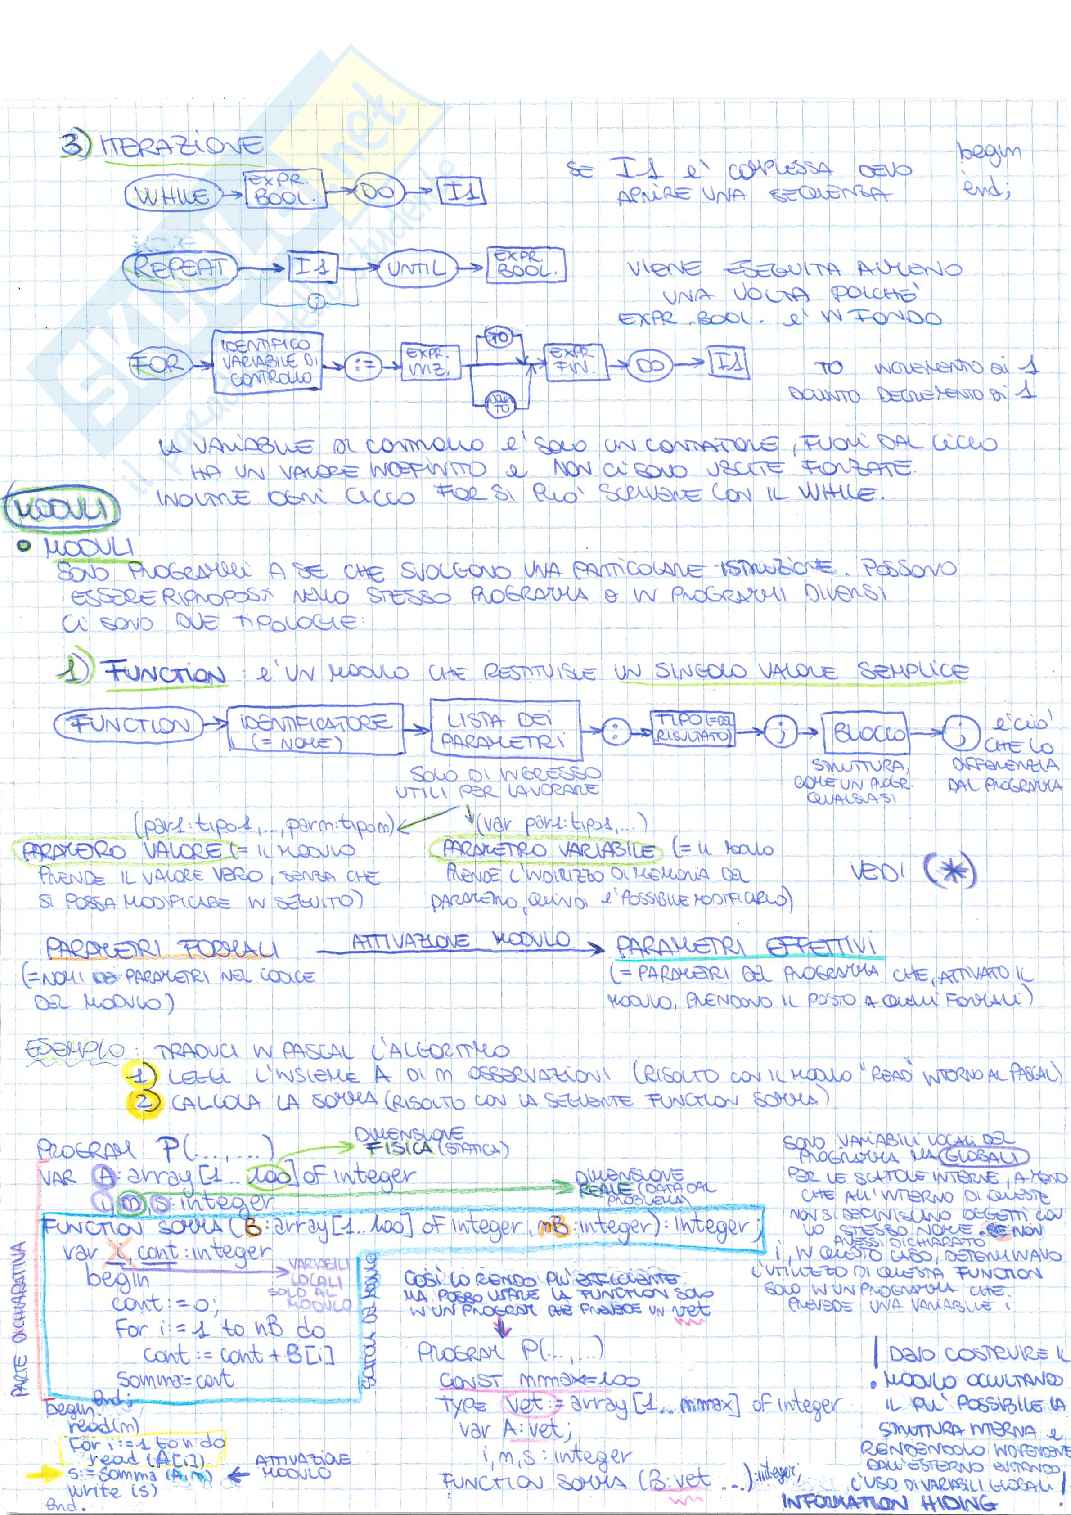 3) ITERAZIONE
WHILE EXPR. BOOL. DO I1
SE I1 E' COMPLESSA DEVO
APRIRE UNA SEQUENZA
begin
end;
REPEAT I1 UNTIL EXPR. BOOL.
;
VIENE ESEGUITA ALMENO
UNA VOLTA POICHE'
EXPR. BOOL. E' IN FONDO
FOR IDENTIFICO VARIABILE DI CONTROLLO := EXPR. INIZ. TO DOWNTO EXPR. FIN. DO I1
TO INCREMENTO DI 1
DOWNTO DECREMENTO DI 1
LA VARIABILE DI CONTROLLO E' SOLO UN CONTATORE, FUORI DAL CICLO
HA UN VALORE INDEFINITO E NON CI SONO USCITE FORZATE.
INOLTRE OGNI CICLO FOR SI PUO' SCRIVERE CON IL WHILE.
MODULI
• MODULI
SONO PROGRAMMI A SE CHE SVOLGONO UNA PARTICOLARE ISTRUZIONE. POSSONO
ESSERE RIPROPOSTI NELLO STESSO PROGRAMMA O IN PROGRAMMI DIVERSI
CI SONO DUE TIPOLOGIE:
1) FUNCTION : E' UN MODULO CHE RESTITUISCE UN SINGOLO VALORE SEMPLICE
FUNCTION IDENTIFICATORE (= NOME) LISTA DEI PARAMETRI : TIPO (= DEL RISULTATO) ; BLOCCO ;
E' CIO'
CHE LO
DIFFERENZIA
DAL PROGRAMMA
SOLO DI INGRESSO
UTILI PER LAVORARE
STRUTTURA,
COME UN PROGR.
QUALSIASI
(par1:tipo1,...,parm:tipom)
(var par1:tipo1,...)
PARAMETRO VALORE (= IL MODULO
PRENDE IL VALORE VERO, SENZA CHE
SI POSSA MODIFICARE IN SEGUITO)
PARAMETRO VARIABILE (= IL MODULO
PRENDE L'INDIRIZZO DI MEMORIA DEL
PARAMETRO, QUINDI E' POSSIBILE MODIFICARLO)
VEDI (*)
PARAMETRI FORMALI ATTIVAZIONE MODULO PARAMETRI EFFETTIVI
(= NOMI DEI PARAMETRI NEL CODICE
DEL MODULO)
(= PARAMETRI DEL PROGRAMMA CHE, ATTIVATO IL
MODULO, PRENDONO IL POSTO A QUELLI FORMALI)
ESEMPIO: TRADUCI IN PASCAL L'ALGORITMO
1) LEGGI L'INSIEME A DI M OSSERVAZIONI (RISOLTO CON IL MODULO "READ" INTORNO AL PASCAL)
2) CALCOLA LA SOMMA (RISOLTO CON LA SEGUENTE FUNCTION SOMMA)
PROGRAM P(...,...)
DIMENSIONE
FISICA (STATICA)
VAR A: array [1...100] of integer
i, m, s: integer
DIMENSIONE
REALE (DATA DAL
PROBLEMA)
FUNCTION SOMMA (B: array [1...100] of integer, mB: integer): integer;
var i, cont: integer
VARIABILI
LOCALI
SOLO AL
MODULO
begin
cont:=0;
For i:=1 to nB do
cont:= cont + B[i]
Somma:=cont
end;
PARTE DICHIARATIVA
begin
read(m)
For i:=1 to n do
read (A[i])
s:= Somma (A,m)
ATTIVAZIONE
MODULO
write (s)
end.
COSI' LO RENDO PIU' EFFICIENTE
MA POSSO USARE LA FUNCTION SOLO
IN UN PROGRAM CHE PREVEDE UN vet
PROGRAM P(...,...)
CONST mmax=100
TYPE vet:= array [1...mmax] of integer
var A: vet;
i, m, s: integer
FUNCTION SOMMA (B: vet ...): integer;
SONO VARIABILI LOCALI DEL
PROGRAMMA MA GLOBALI
PER LE SCATOLE INTERNE, A MENO
CHE ALL'INTERNO DI QUESTE
NON SI DEFINISCANO OGGETTI CON
LO STESSO NOME. SE NON
AVESSI DICHIARATO
i, IN QUESTO CASO, DETERMINAVO
L'UTILIZZO DI QUESTA FUNCTION
SOLO IN UN PROGRAMMA CHE
PREVEDE UNA VARIABILE i
! DEVO COSTRUIRE IL
MODULO OCCULTANDO
IL PIU' POSSIBILE LA
STRUTTURA INTERNA E
RENDENDOLO INDIPENDENTE
DALL'ESTERNO EVITANDO
L'USO DI VARIABILI GLOBALI!
INFORMATION HIDING